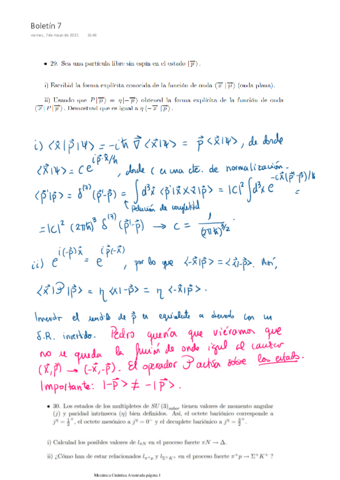 Boletín 7
martes, 7 de mayo de 2013 16:46
• 29. Sea una partícula libre sin espín en el estado |p⃗⟩.
i) Escribid la forma explícita conocida de la función de onda ⟨x⃗ | p⃗⟩ (onda plana).
ii) Usando que P |p⃗⟩ = η |−p⃗⟩ obtened la forma explícita de la función de onda
⟨x⃗ | P | p⃗⟩. Demostrad que es igual a η ⟨−x⃗ | p⃗⟩.
i) ⟨x̂|p̂|Ψ⟩ = −iħ ∇⃗ ⟨x⃗|Ψ⟩ = p⃗ ⟨x⃗|Ψ⟩, de donde
⟨x⃗|Ψ⟩ = C e^{i p⃗ x⃗/ħ}, donde C es una cte. de normalización.
⟨p⃗'|p⃗⟩ = δ^{(3)}(p⃗'−p⃗) = ∫d³x ⟨p⃗'|x⃗⟩⟨x⃗|p⃗⟩ = |C|² ∫d³x e^{−i x⃗(p⃗'−p⃗)/ħ}
relación de completitud
= |C|² (2πħ)³ δ^{(3)}(p⃗'−p⃗) → C = 1/(2πħ)^{3/2}
ii) e^{i(−p⃗)x⃗} = e^{i p⃗(−x⃗)}, por lo que ⟨−x⃗|p⃗⟩ = ⟨x⃗|−p⃗⟩. Así,
⟨x⃗|P|p⃗⟩ = η ⟨x|−p⃗⟩ = η ⟨−x⃗|p⃗⟩
Invertir el sentido de p⃗ es equivalente a hacerlo con un
S.R. invertido. Pedro quería que viéramos que
no se queda la función de onda igual al cambiar
(x⃗,p⃗) → (−x⃗,−p⃗). El operador P actúa sobre los estados.
Importante: |−p⃗⟩ ≠ −|p⃗⟩
• 30. Los estados de los multipletes de SU(3)sabor tienen valores de momento angular
(j) y paridad intrínseca (η) bien definidos. Así, el octete bariónico corresponde a
j^η = 1/2⁺, el octete mesónico a j^η = 0⁻ y el decuplete bariónico a j^η = 3/2⁺.
i) Calculad los posibles valores de l_πN en el proceso fuerte πN → Δ.
ii) ¿Cómo han de estar relacionados l_π⁺p y l_Σ⁺K⁺ en el proceso fuerte π⁺p → Σ⁺K⁺ ?
Mecánica Cuántica Avanzada página 1